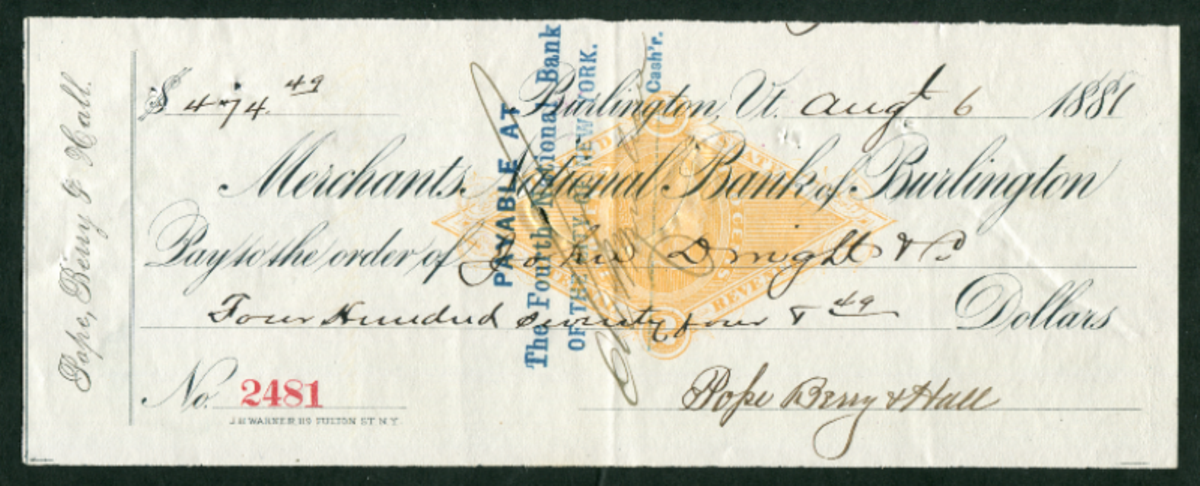 Pope, Berry & Hall.
$ 474.49
Burlington, Vt. Augt 6 1881
Merchants National Bank of Burlington
Pay to the order of John Dwight & Co
Four Hundred seventy four & 49 Dollars
No. 2481
Pope Berry & Hall
J H WARNER, 119 FULTON ST. N.Y.
PAYABLE AT
The Fourth National Bank
OF THE CITY OF NEW YORK.
Cash'r.